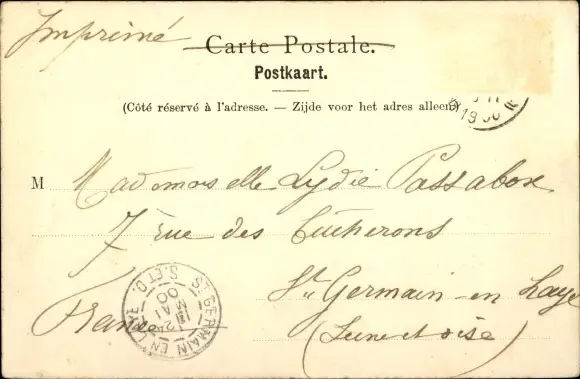 Imprimé
Carte Postale.
Postkaart.
(Côté réservé à l'adresse. — Zijde voor het adres alleen)
1900
M Mademoiselle Lydie Passabox
7 rue des Bûcherons
St Germain en Laye
France
(Seine et oise)
ST GERMAIN EN LAYE S. ET O.
12
MAI
00